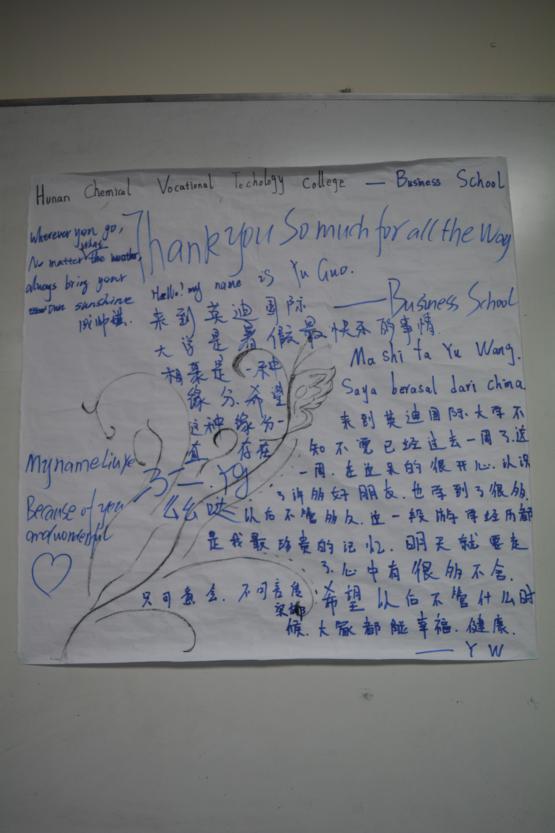 Hunan Chemical Vocational Techology College — Business School
Thank you So much for all the Way
— Business School
Wherever you go,
No matter the
always bring your
own sunshine
Hello! my name is Yu Guo.
来到英迪国际
大学是暑假最快乐的事情
相聚是一种
缘分.希望
这种缘分一
直存在
么么哒
My name Liu ke
Because of you
and wonderful
Ma shi ta Yu Wang.
Saya berasal dari china
来到英迪国际大学不
知不觉已经过去一周了.这
一周.在这里的很开心.认识
了许多好朋友.也学到了很多.
以后不管多久.这一段游学经历都
是我最珍贵的记忆.明天就要走
了.心中有很多不舍.
希望以后不管什么时
候.大家都能幸福.健康.
— Y W
只可意会.不可言传